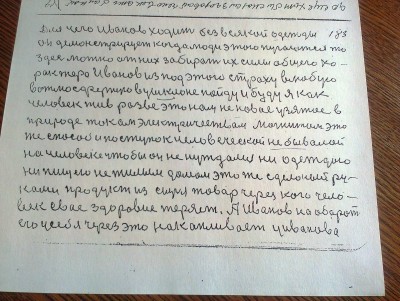 Для чего Иванов ходит без всякой одетды 183
он демонстрирует когда люди этого пугаются то
здея мотно от них забирать их силы общего ха-
рактера Иванов из под этого страху
человек тив разве это нам не новае узятае в
природе током электричествам Магнитам это
те способ и поступок человеческой небывалай
на человеке чтобы он не нуждался ни одетдаю
ни пищею не тилым домам это те сделоный ру-
ками продукт из сырья товар через кого чело-
век свае здоровие теряет. А Иванов на оборот
его у себя через это накапливает у иванова